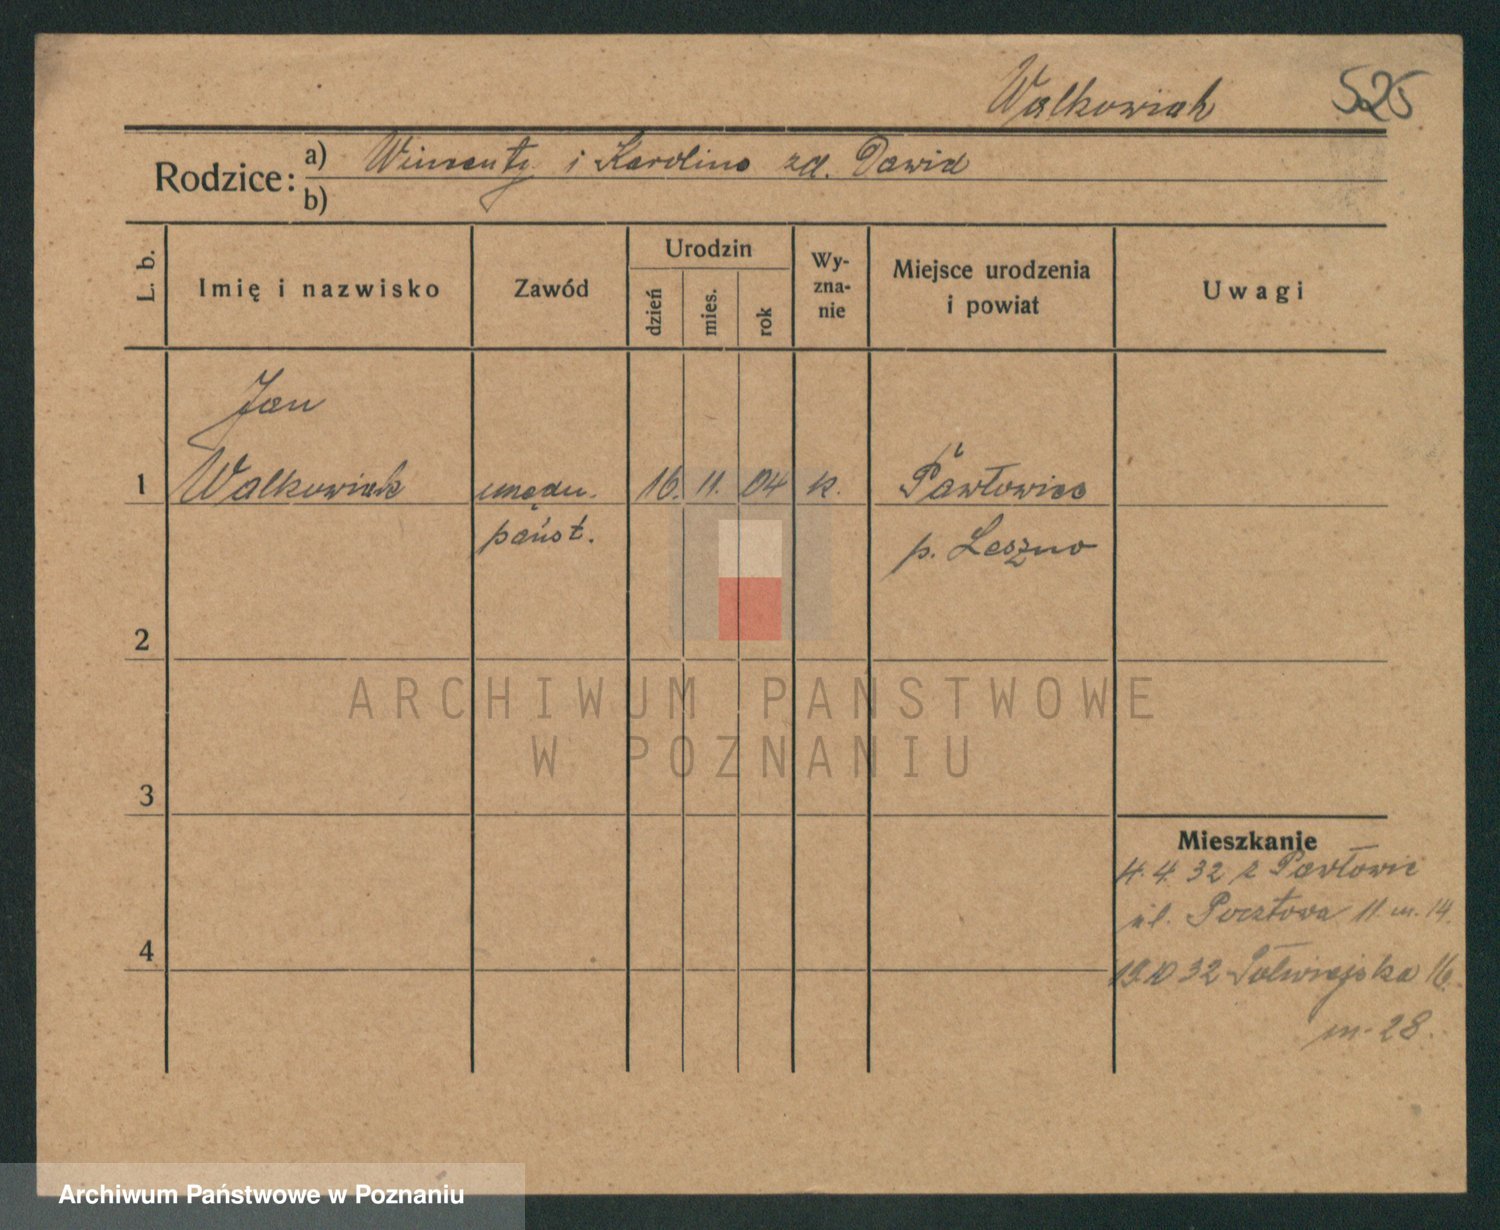 Walkowiak 525
Rodzice: a) Wincenty i Karolina zd. Dawid
b)
L. b.
Imię i nazwisko
Zawód
Urodzin
dzień
mies.
rok
Wy-
zna-
nie
Miejsce urodzenia
i powiat
Uwagi
Jan
1 Walkowiak urzędn. 16. 11. 04 k. Pawłowice
państ. p. Leszno
2
ARCHIWUM PAŃSTWOWE
W POZNANIU
3
Mieszkanie
4.4.32 z Pawłowic
ul. Pocztowa 11 m. 14.
4
19.10 32 Półwiejska 16.
m. 28.
Archiwum Państwowe w Poznaniu